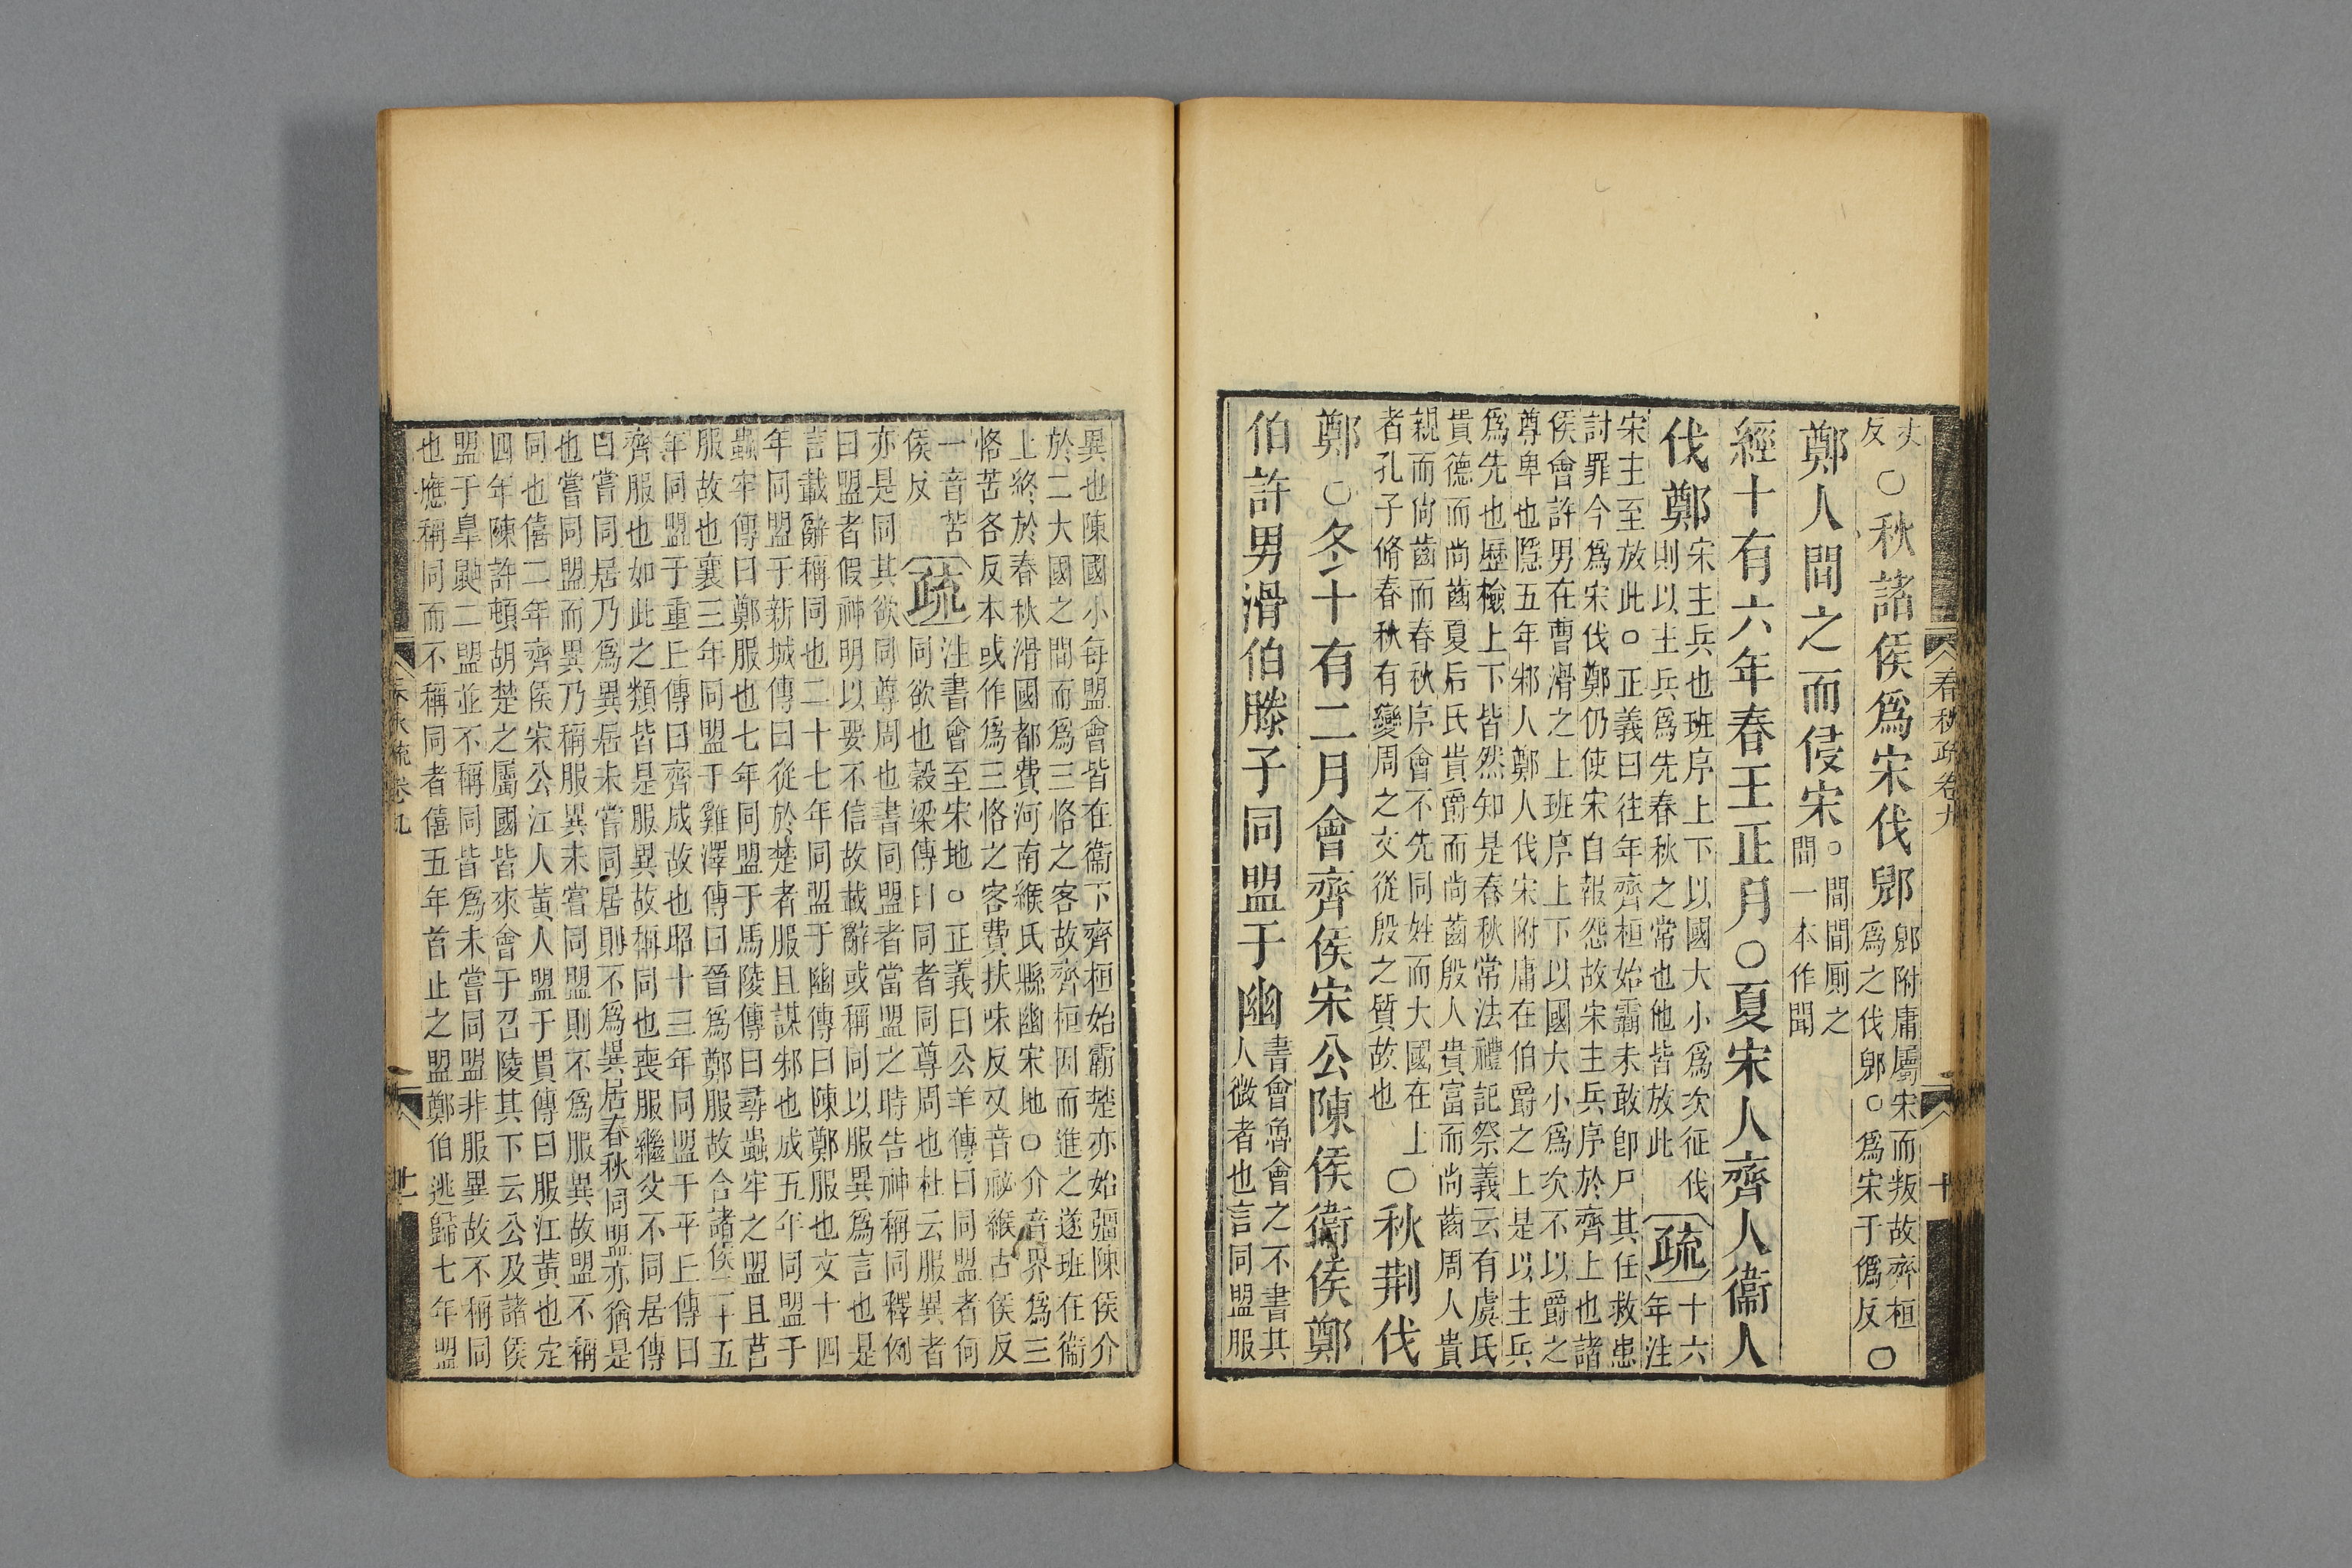 丈
反
〇秋諸侯爲宋伐郳
郳附庸屬宋而叛故齊桓
爲之伐郳〇爲宋于僞反
〇
鄭人間之而侵宋
〇間間厠之
間一本作聞
經十有六年春王正月〇夏宋人齊人衞人
伐鄭
宋主兵也班序上下以國大小爲次征伐
則以主兵爲先春秋之常也他皆放此
疏
十六
年注
宋主至放此〇正義曰往年齊桓始霸未敢卽尸其任救患
討罪今爲宋伐鄭仍使宋自報怨故宋主兵序於齊上也諸
侯會許男在曹滑之上班序上下以國大小爲次不以爵之
尊卑也隱五年邾人鄭人伐宋附庸在伯爵之上是以主兵
爲先也歷檢上下皆然知是春秋常法禮記祭義云有虞氏
貴德而尚齒夏后氏貴爵而尚齒殷人貴富而尚齒周人貴
親而尚齒而春秋序會不先同姓而大國在上
者孔子脩春秋有變周之文從殷之質故也
〇秋荆伐
鄭〇冬十有二月會齊侯宋公陳侯衞侯鄭
伯許男滑伯滕子同盟于幽
書會魯會之不書其
人微者也言同盟服
春秋疏卷九
十
異也陳國小每盟會皆在衞下齊桓始霸楚亦始彊陳侯介
於二大國之間而爲三恪之客故齊桓因而進之遂班在衞
上終於春秋滑國都費河南緱氏縣幽宋地〇介音界爲三
恪苦各反本或作爲三恪之客費扶味反又音祕緱古侯反
一音苦
侯反
疏
注書會至宋地〇正義曰公羊傳曰同盟者何
同欲也穀梁傳曰同者同尊周也杜云服異者
亦是同其欲同尊周也書同盟者當盟之時告神稱同釋例
曰盟者假神明以要不信故載辭或稱同以服異爲言也是
言載辭稱同也二十七年同盟于幽傳曰陳鄭服也文十四
年同盟于新城傳曰從於楚者服且謀邾也成五年同盟于
蟲牢傳曰鄭服也七年同盟于馬陵傳曰尋蟲牢之盟且莒
服故也襄三年同盟于雞澤傳曰晉爲鄭服故合諸侯二十五
年同盟于重丘傳曰齊成故也昭十三年同盟于平丘傳曰
齊服也如此之類皆是服異故稱同也喪服繼父不同居傳
曰嘗同居乃爲異居未嘗同居則不爲異居春秋同盟亦猶是
也嘗同盟而異乃稱服異未嘗同盟則不爲服異故盟不稱
同也僖二年齊侯宋公江人黃人盟于貫傳曰服江黃也定
四年陳許頓胡楚之屬國皆來會于召陵其下云公及諸侯
盟于皐鼬二盟並不稱同皆爲未嘗同盟非服異故不稱同
也應稱同而不稱同者僖五年首止之盟鄭伯逃歸七年盟
春秋疏卷九